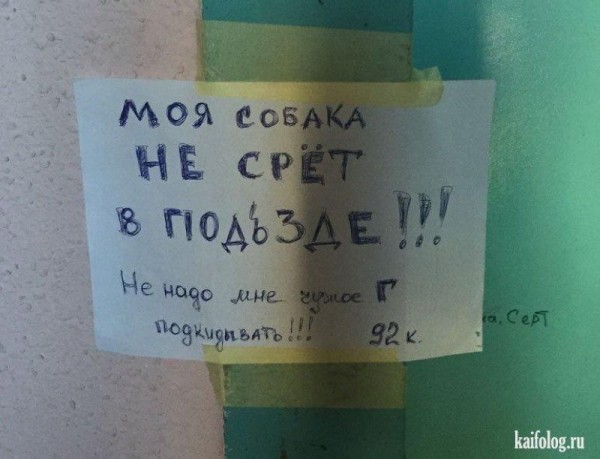 МОЯ СОБАКА
НЕ СРЁТ
В ПОДЪЗДЕ!!!
Не надо мне чужое Г
подкидывать!!! 92 к.
а, Серт
kaifolog.ru